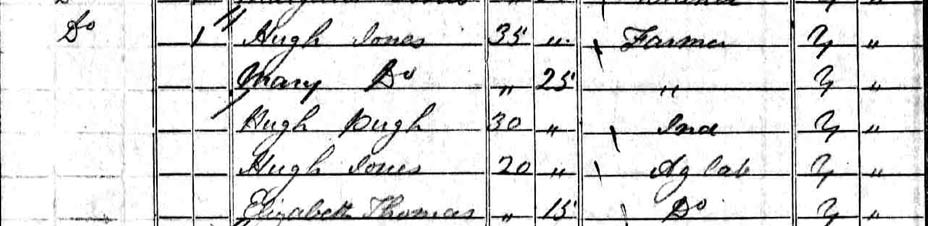 Do 1 Hugh Jones 35 " Farmer Y "
Mary Do " 25 " Y "
Hugh Pugh 30 " Ind Y "
Hugh Jones 20 " Ag lab Y "
Elizabeth Thomas " 15 Do Y "